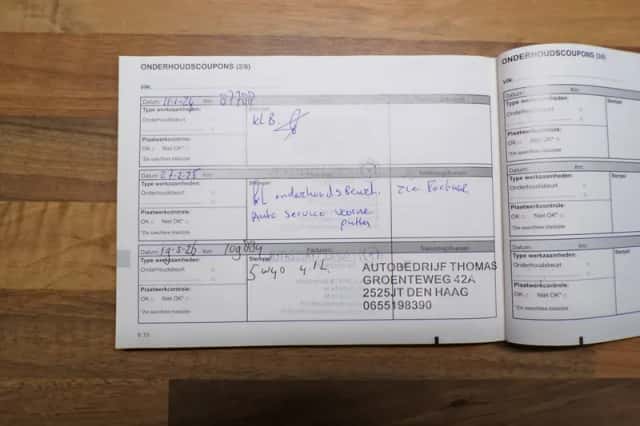 ONDERHOUDSCOUPONS (2/6)
VIN:
Datum: Km: 87788
Type werkzaamheden:
Onderhoudsbeurt
KLB
Plaatwerkcontrole:
OK Niet OK*
*Zie specifieke bladzijde
Datum: 27-2-25 Km:
Type werkzaamheden: Stempel
Onderhoudsbeurt
KL onderhoudsbeurt. zie factuur
Plaatwerkcontrole: Auto service
OK Niet OK* putten
*Zie specifieke bladzijde
Datum: 19-5-26 Km:
Type werkzaamheden: Stempel
Onderhoudsbeurt 5W40 4.1L
Plaatwerkcontrole:
OK Niet OK*
*Zie specifieke bladzijde
AUTOBEDRIJF THOMAS
GROENTEWEG 42A
2525JT DEN HAAG
0655198390
ONDERHOUDSCOUPONS
VIN:
Datum: Km:
Type werkzaamheden: Stempel
Onderhoudsbeurt
Plaatwerkcontrole:
OK Niet OK*
*Zie specifieke bladzijde
Datum: Km:
Type werkzaamheden: Stempel
Onderhoudsbeurt
Plaatwerkcontrole:
OK Niet OK*
*Zie specifieke bladzijde
Datum: Km:
Type werkzaamheden: Stempel
Onderhoudsbeurt
Plaatwerkcontrole:
OK Niet OK*
*Zie specifieke bladzijde